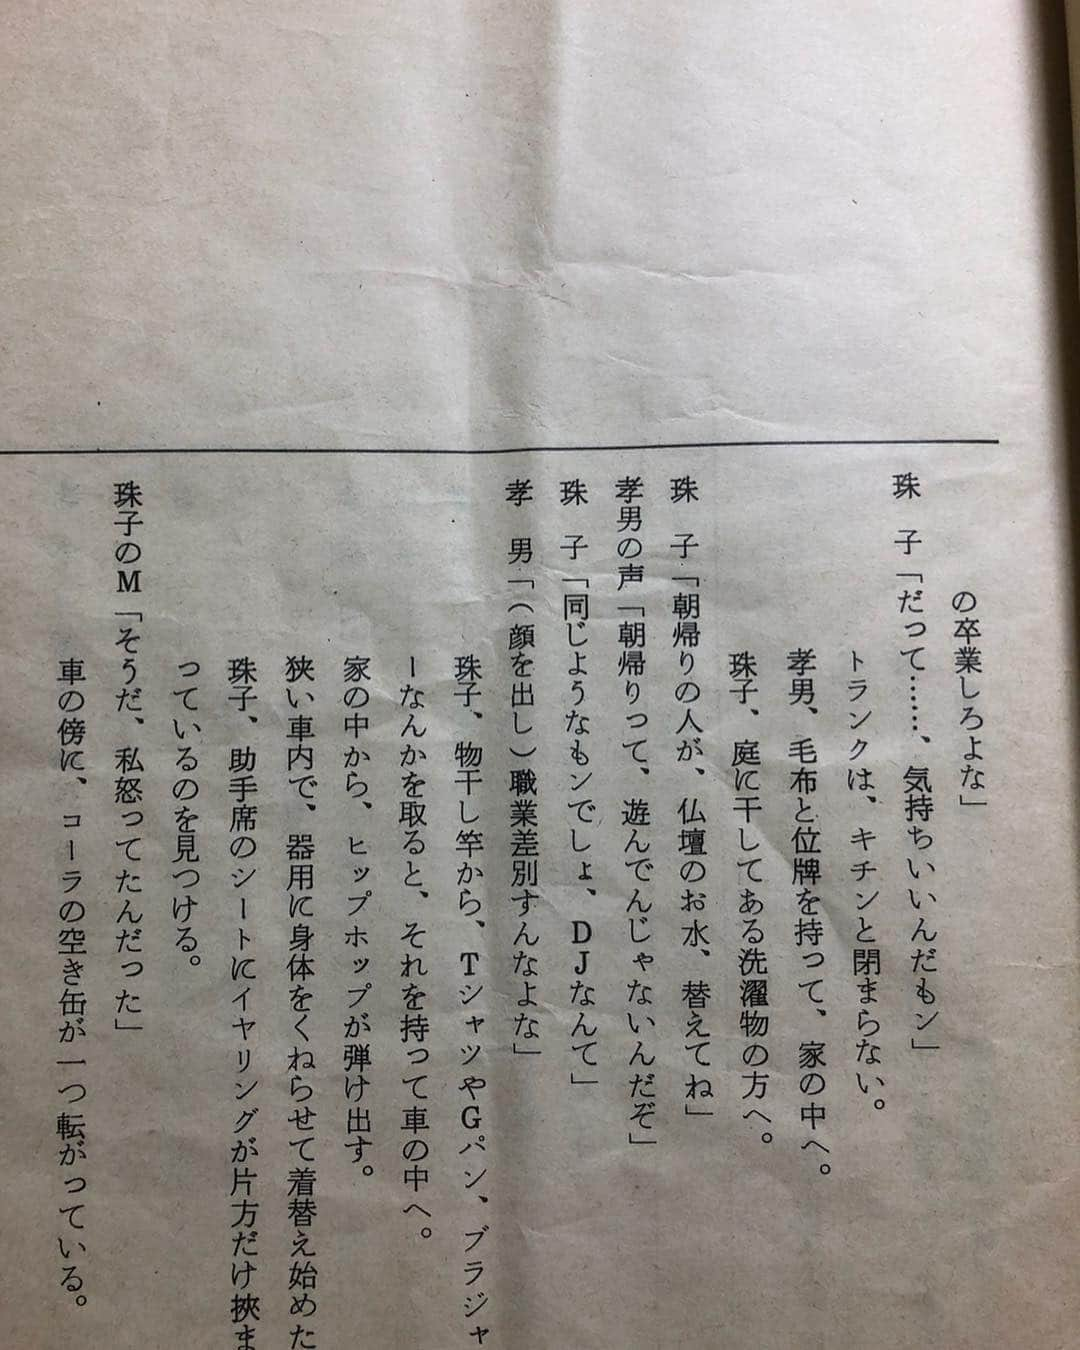 の卒業しろよな」
珠　子「だって……、気持ちいいんだもン」
トランクは、キチンと閉まらない。
孝男、毛布と位牌を持って、家の中へ。
珠子、庭に干してある洗濯物の方へ。
珠　子「朝帰りの人が、仏壇のお水、替えてね」
孝男の声「朝帰りって、遊んでんじゃないんだぞ」
珠　子「同じようなもンでしょ、DJなんて」
孝　男「（顔を出し）職業差別すんなよな」
珠子、物干し竿から、TシャツやGパン、ブラジャ
ーなんかを取ると、それを持って車の中へ。
家の中から、ヒップホップが弾け出す。
狭い車内で、器用に身体をくねらせて着替え始めた
珠子、助手席のシートにイヤリングが片方だけ挾ま
っているのを見つける。
珠子のM「そうだ、私怒ってたんだった」
車の傍に、コーラの空き缶が一つ転がっている。